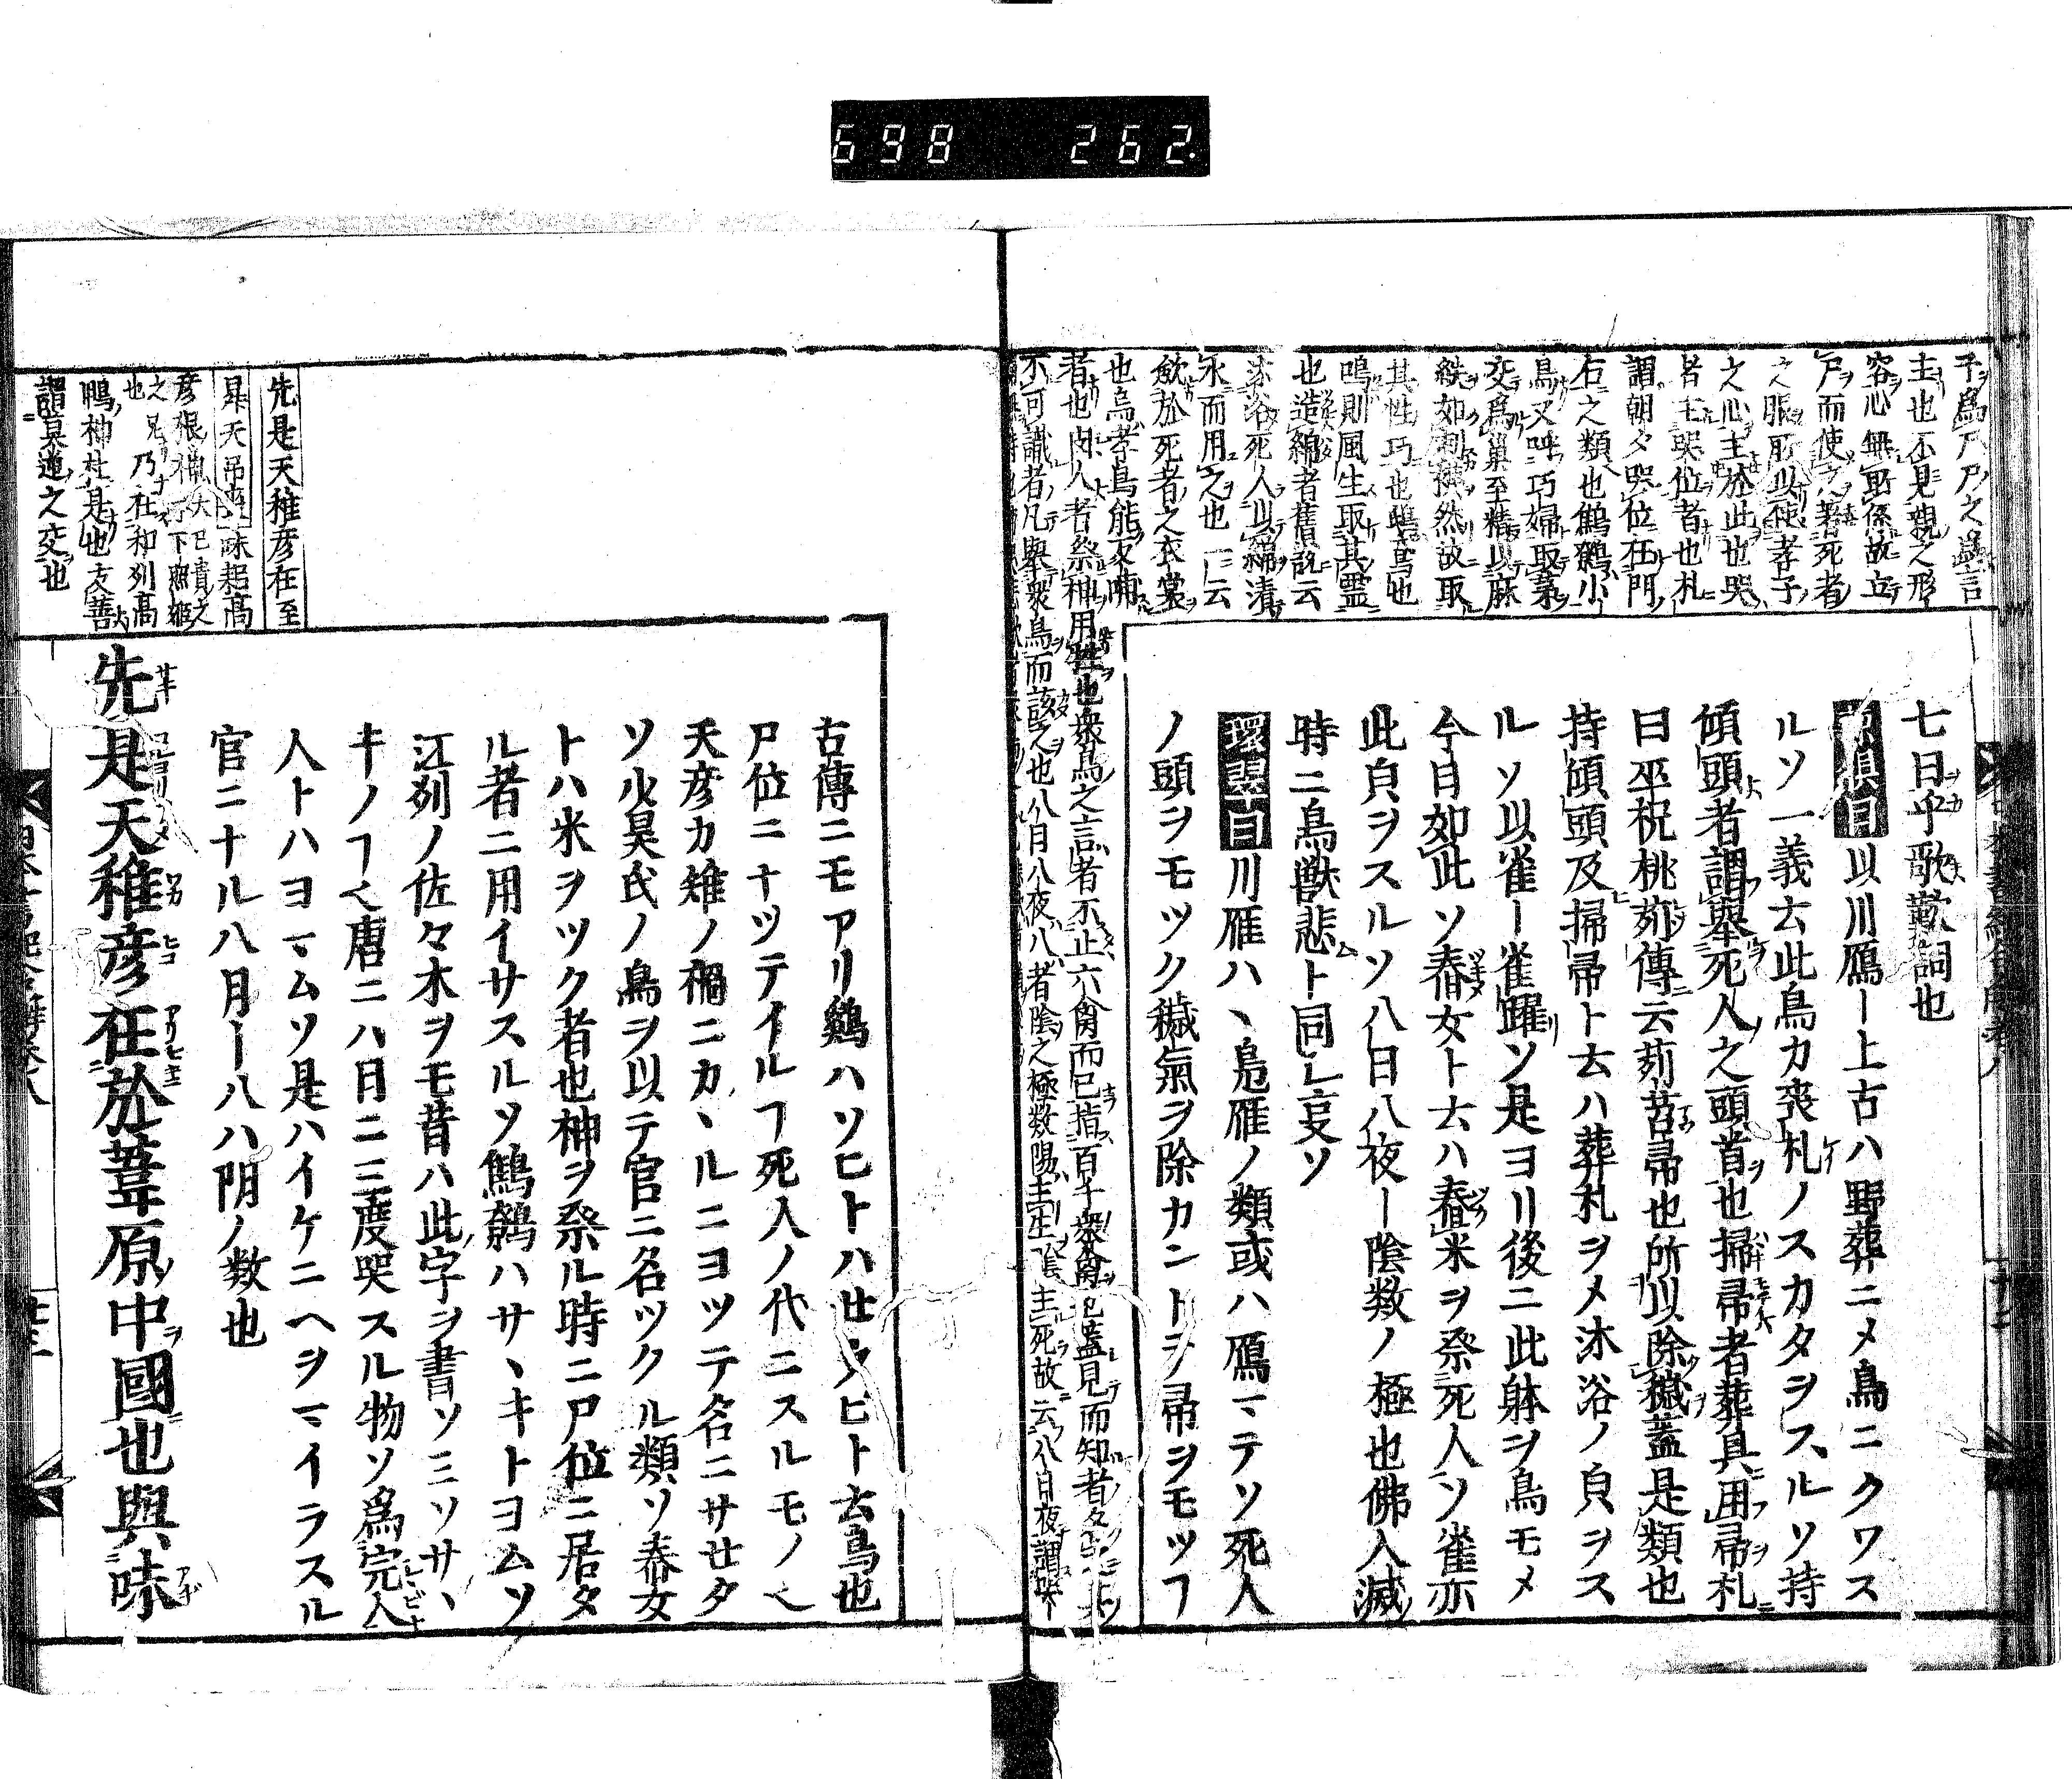 698 262.
子為尸尸之為言
主也不見親之形
容心無所係故立
尸而使之著死者
之服所以使孝子
之心主於此也哭
者主哭位者也札
謂朝夕哭位在門
右之類也鷦鷯小
鳥又呼巧婦取茅
交為巣至精以麻
紩如刺襪然故取
其性巧也鵄鳥也
鳴則風生取其霊
也造綿者舊説云
沐浴死人以綿漬
水而用之也一云
飲於死者之衣裳
也烏孝鳥能反哺
者也肉人者祭神用牲也衆鳥之言者不止六禽而已指百千衆禽也蓋見而知者
不可識者凡舉衆鳥而該之也八日八夜八者陰之極数陽主生陰主死故云八日夜謂哭
七日乎歌歎詞也
以川鴈ー上古ハ野葬ニメ鳥ニクワス
ルソ一義云此鳥カ喪札ノスカタヲスルソ持
傾頭者謂擧死人之頭首也掃帚者葬具囲帚札
曰巫祝桃茢傳云茢苕帚也所以除穢蓋是類也
持傾頭及掃帚ト云ハ葬札ヲメ沐浴ノ㒵ヲス
ルソ以雀ー雀躍ソ是ヨリ後ニ此躰ヲ鳥モメ
今日如此ソ舂女ト云ハ舂米ヲ祭死人ソ雀亦
此㒵ヲスルソ八日八夜ー陰数ノ極也佛入滅
時ニ鳥獣悲ト同レ哀ソ
環翠曰川雁ハ、鳧雁ノ類或ハ鴈ーマテソ死人
ノ頭ヲモツク穢氣ヲ除カントヲ帚ヲモツフ
古傳ニモアリ鷄ハソヒトハセウビト云鳥也
尸位ニナツテイルフ死人ノ代ニスルモノ也
天彦カ雉ノ禍ニカヽルニヨツテ名ニサセタ
ソ少昊氏ノ鳥ヲ以テ官ニ名ツクル類ソ舂女
トハ米ヲツク者也神ヲ祭ル時ニ尸位ニ居タ
ル者ニ用イサスルソ鷦鷯ハサヽキトヨムソ
江列ノ佐々木ヲモ昔ハ此字ヲ書ソミソサヽ
キノフ也唐ニハ日ニ三度哭スル物ソ為完人
人トハヨマムソ是ハイケニヘヲマイラスル
官ニナル八月ー八ハ陰ノ数也
先是天稚彦在至
昇天吊喪味耜高
彦根神大己貴之
子下照姫
之兄也乃在和列高
鴨神社是也友善
謂莫逆之交也
先是天稚彦在於葦原中國也與味